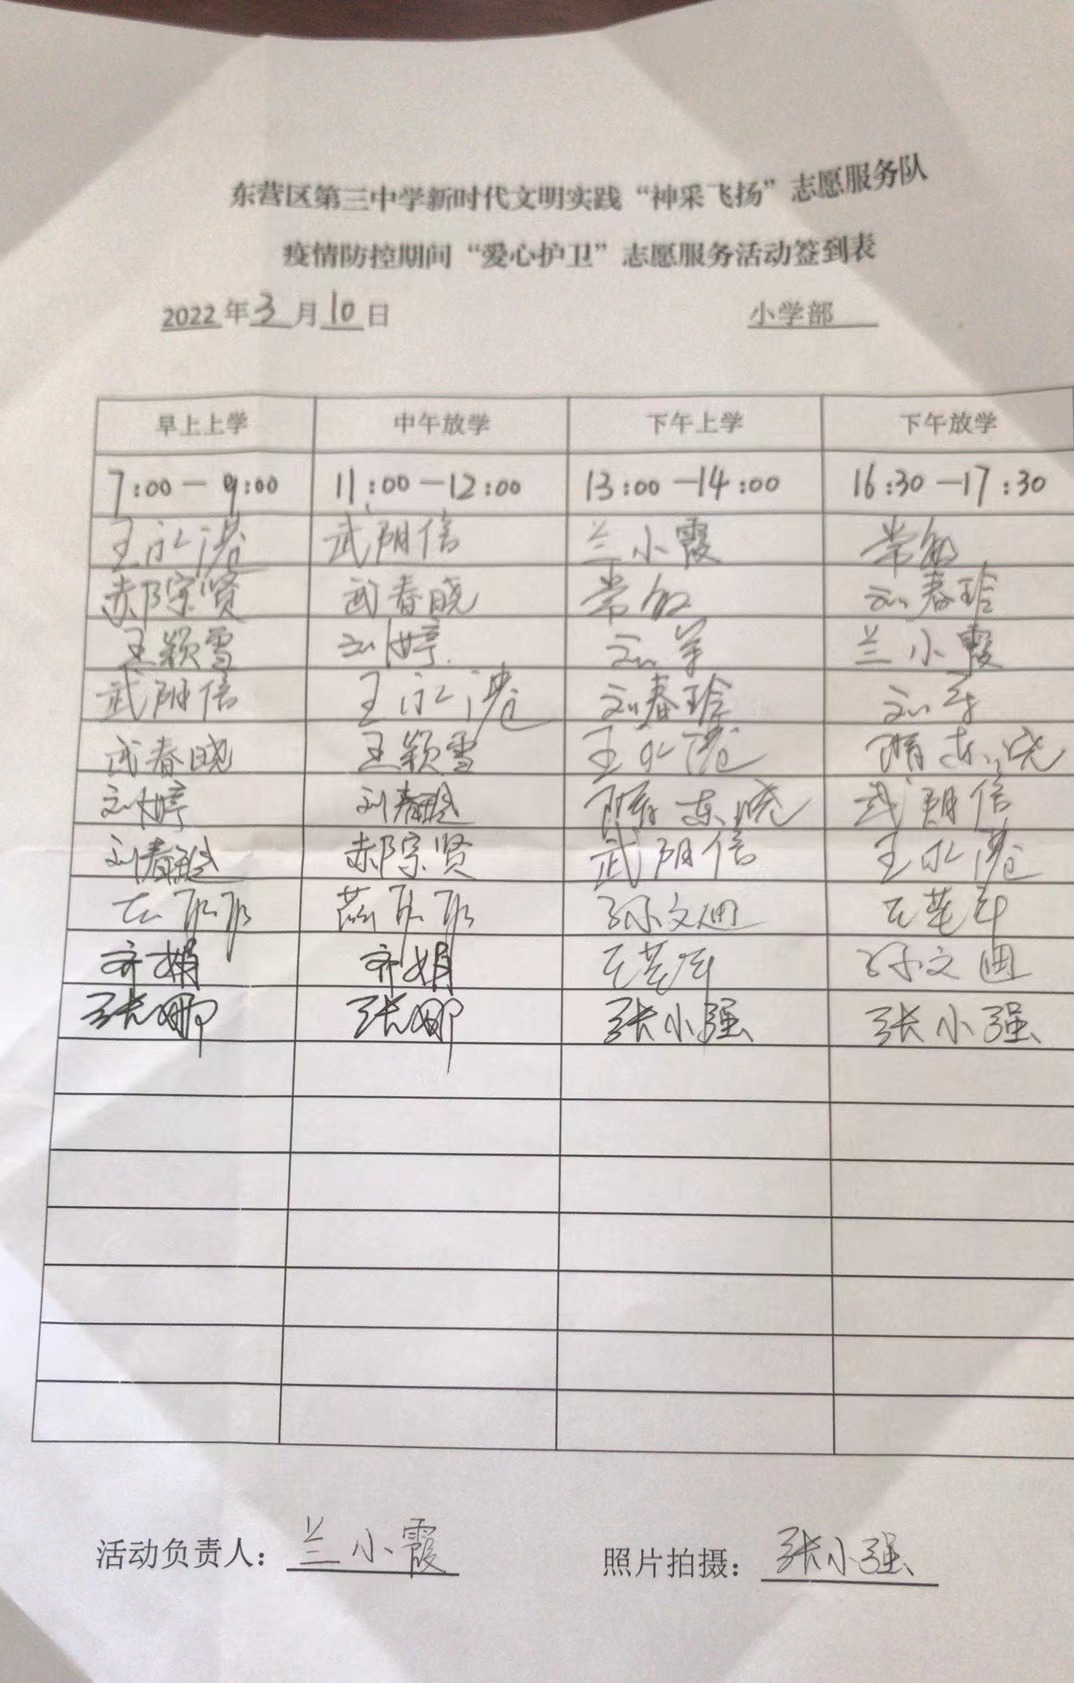 东营区第三中学新时代文明实践“神采飞扬”志愿服务队
疫情防控期间“爱心护卫”志愿服务活动签到表
2022年3月10日 小学部
早上上学 中午放学 下午上学 下午放学
7:00-9:00 11:00-12:00 13:00-14:00 16:30-17:30
王永港 武阴信 兰小霞 常敏
郝宗贤 武春晓 常敏 刘春玲
王颖雪 刘婷 刘军 兰小霞
武阴信 王永港 刘春玲 刘军
武春晓 王颖雪 王永港 隋东晓
刘婷 刘春艳 隋东晓 武阴信
刘春艳 郝宗贤 武阴信 王永港
孙文迪
齐娟 齐娟 孙文迪
张娜 张娜 张小强 张小强
活动负责人：兰小霞 照片拍摄：张小强